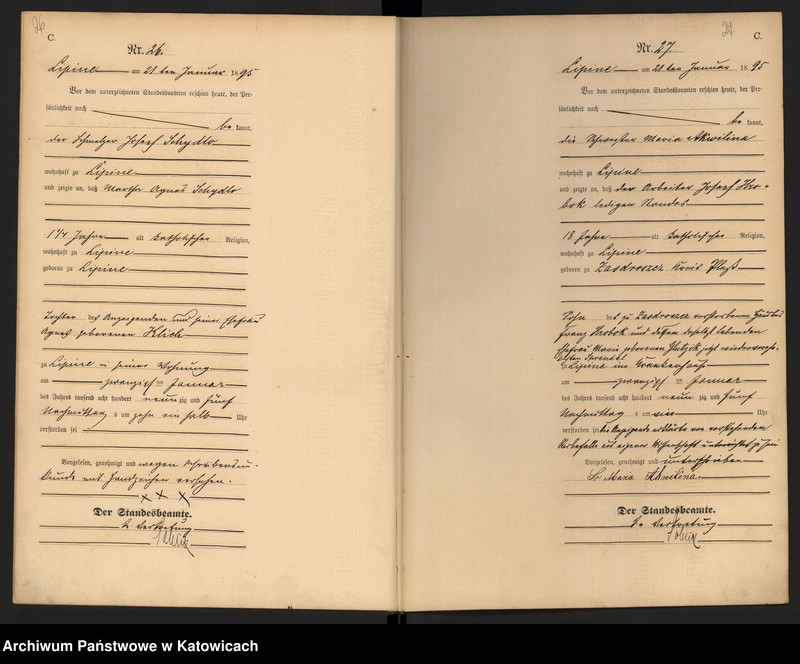 26
C.
Nr. 26.
Lipine am 21ten Januar 1895
Vor dem unterzeichneten Standesbeamten erschien heute, der Per-
sönlichkeit nach
be kannt,
der Schmelzer Josef Schydlo
wohnhaft zu Lipine
und zeigte an, daß Martha Agnes Schydlo
1 1/4 Jahre alt katholischer Religion,
wohnhaft zu Lipine
geboren zu Lipine
Tochter des Anzeigenden und seiner Ehefrau
Agnes geborenen Klich
zu Lipine in seiner Wohnung
am zwanzigsten Januar
des Jahres tausend acht hundert neun zig und fünf
Nachmittag s um zehn ein halb Uhr
verstorben sei
Vorgelesen, genehmigt und wegen Schreibensun-
kunde mit Handzeichen versehen.
x x x
Der Standesbeamte.
In Vertretung
C.
Nr. 27.
Lipine am 21ten Januar 1895
Vor dem unterzeichneten Standesbeamten erschien heute, der Per-
sönlichkeit nach
be kannt,
die Schwester Maria Akwilina
wohnhaft zu Lipine
und zeigte an, daß der Arbeiter Josef Hro-
bok ledigen Standes
18 Jahre alt katholischer Religion,
wohnhaft zu Lipine
geboren zu Zasdroszcz Kreis Pleß
Sohn des zu Zasdroszcz verstorbenen
Franz Hrobok und dessen daselbst lebenden
Ehefrau Marie geborenen jetzt wiederverehe-
lichten
zu Lipine im Krankenhause
am zwanzigsten Januar
des Jahres tausend acht hundert neun zig und fünf
Nachmittag s um vier Uhr
verstorben sei die Anzeigende erklärte von vorstehenden
Sterbefalle aus eigener Wissenschaft unterrichtet zu sein
Vorgelesen, genehmigt und unterschrieben
Sr Maria Akwilina.
Der Standesbeamte.
In Vertretung
Archiwum Państwowe w Katowicach